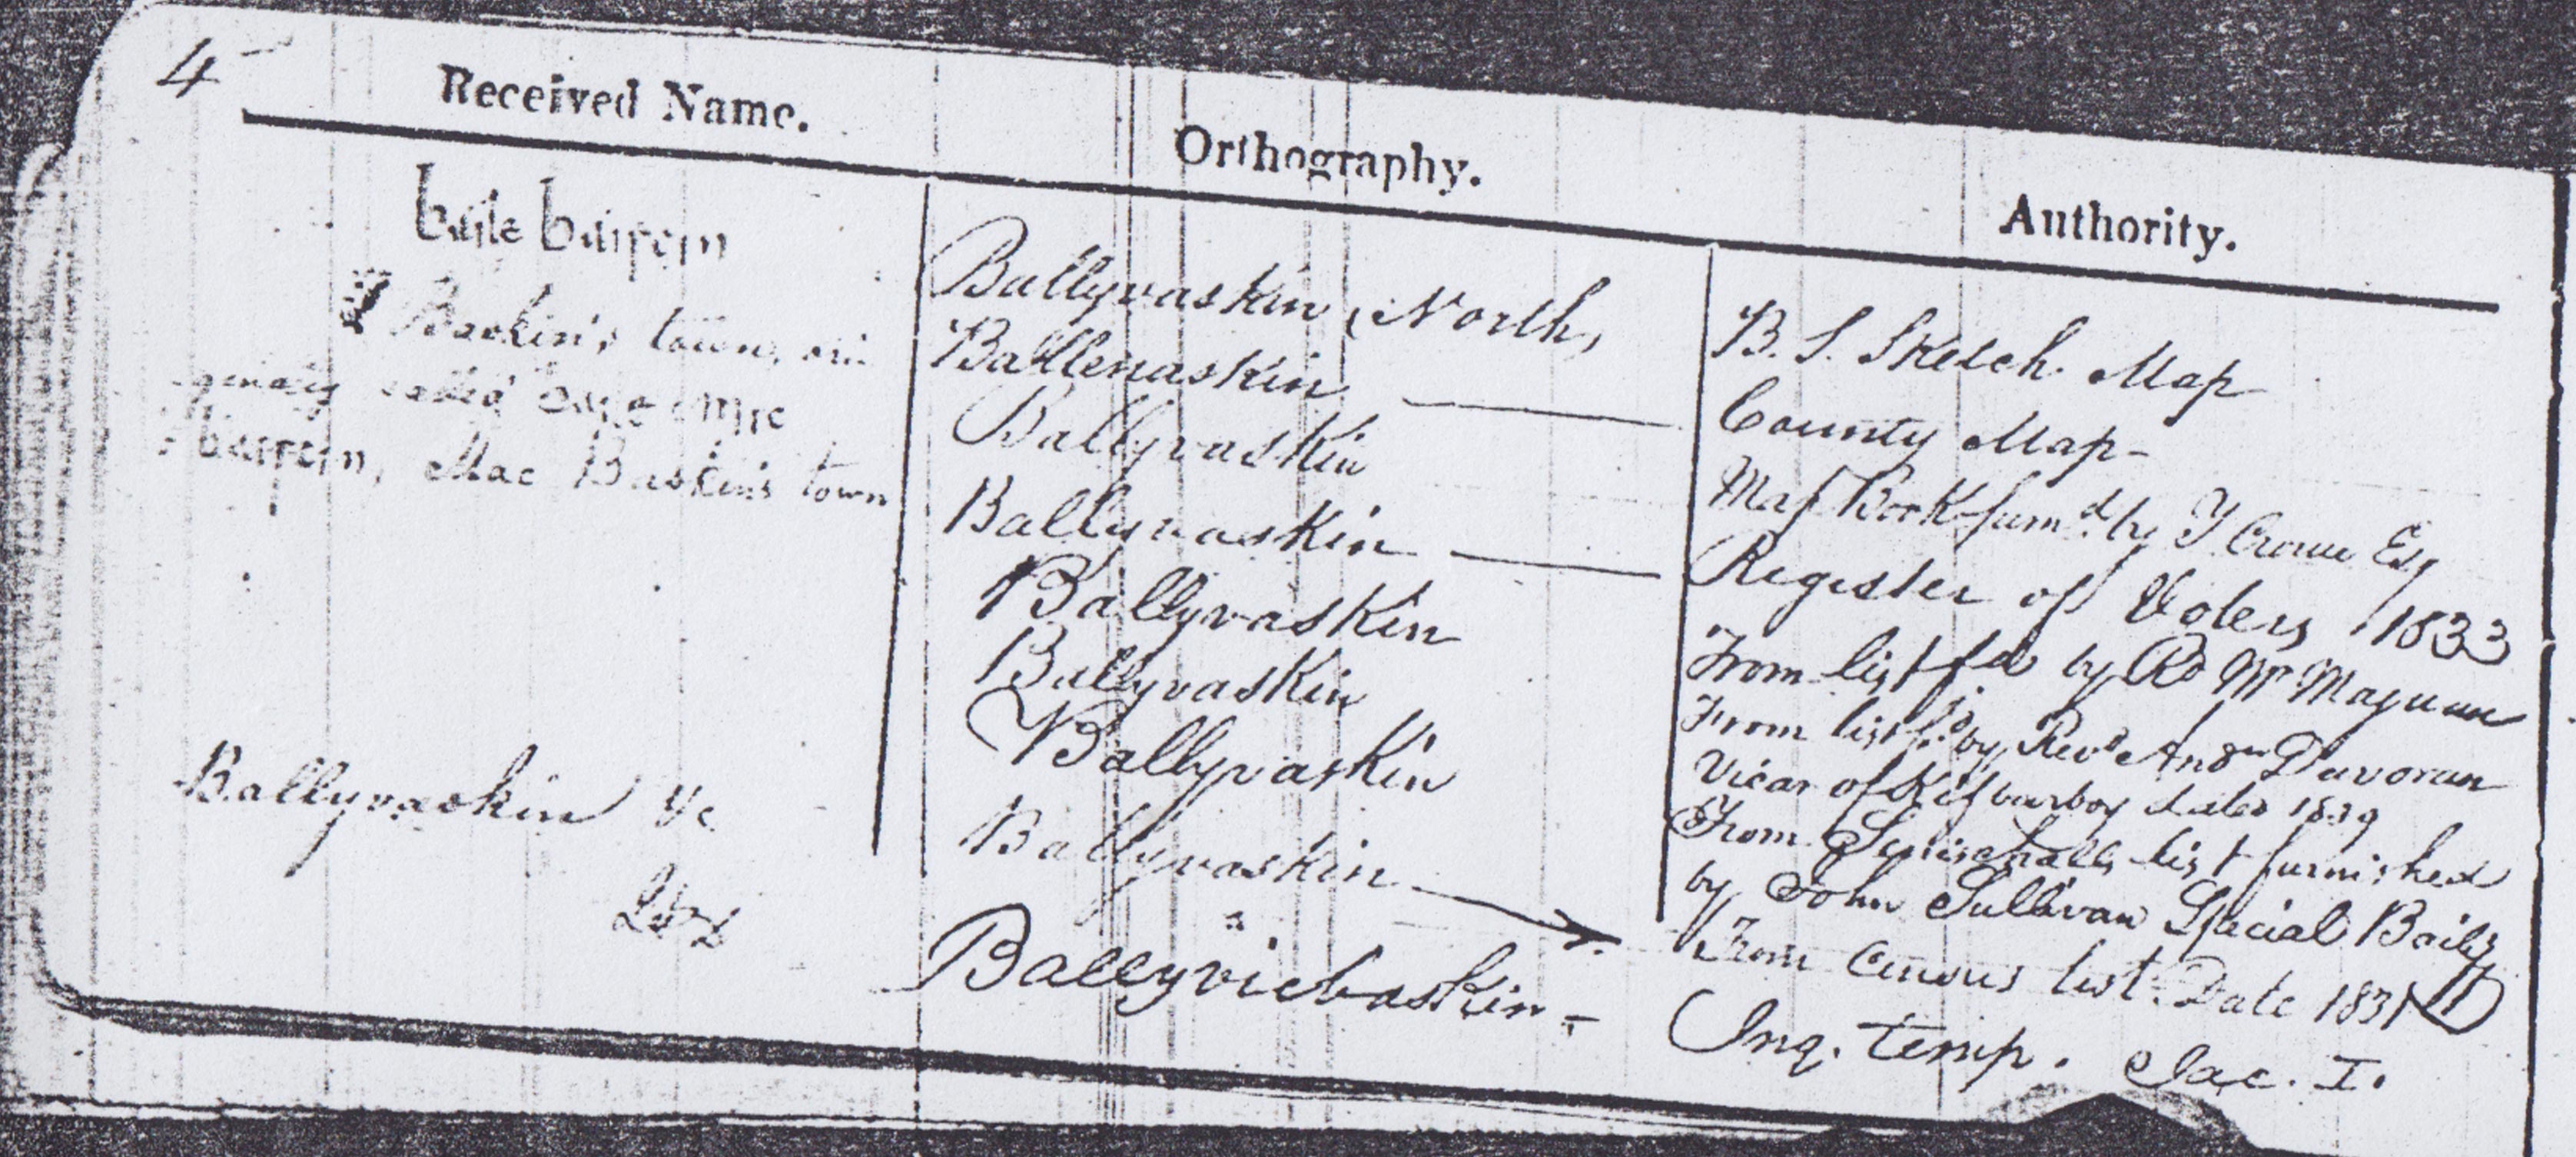 4
Received Name.
Orthography.
Authority.
baile baiscin
Baskin's town, ori-
ginally called baile mic
baiscin, Mac Baskin's town
Ballyvaskin
Ballyvaskin, North,
Ballenaskin
Ballyvaskin
Ballyvaskin
Ballyvaskin
Ballyvaskin
Ballyvaskin
Ballyvaskin
Ballyvicbaskin -
B. S. Sketch Map
County Map
Map Book furnd. by Crowe Esq
Register of Voters 1833
From list fd by Rd Mr Maguan
From list fd by Revd Andw Davoran
Vicar of Kilfarboy dated 1839
From Senischalls list furnished
by John Sullivan Special Baily
From Census list. Date 1831
Inq. temp. Jac. I.